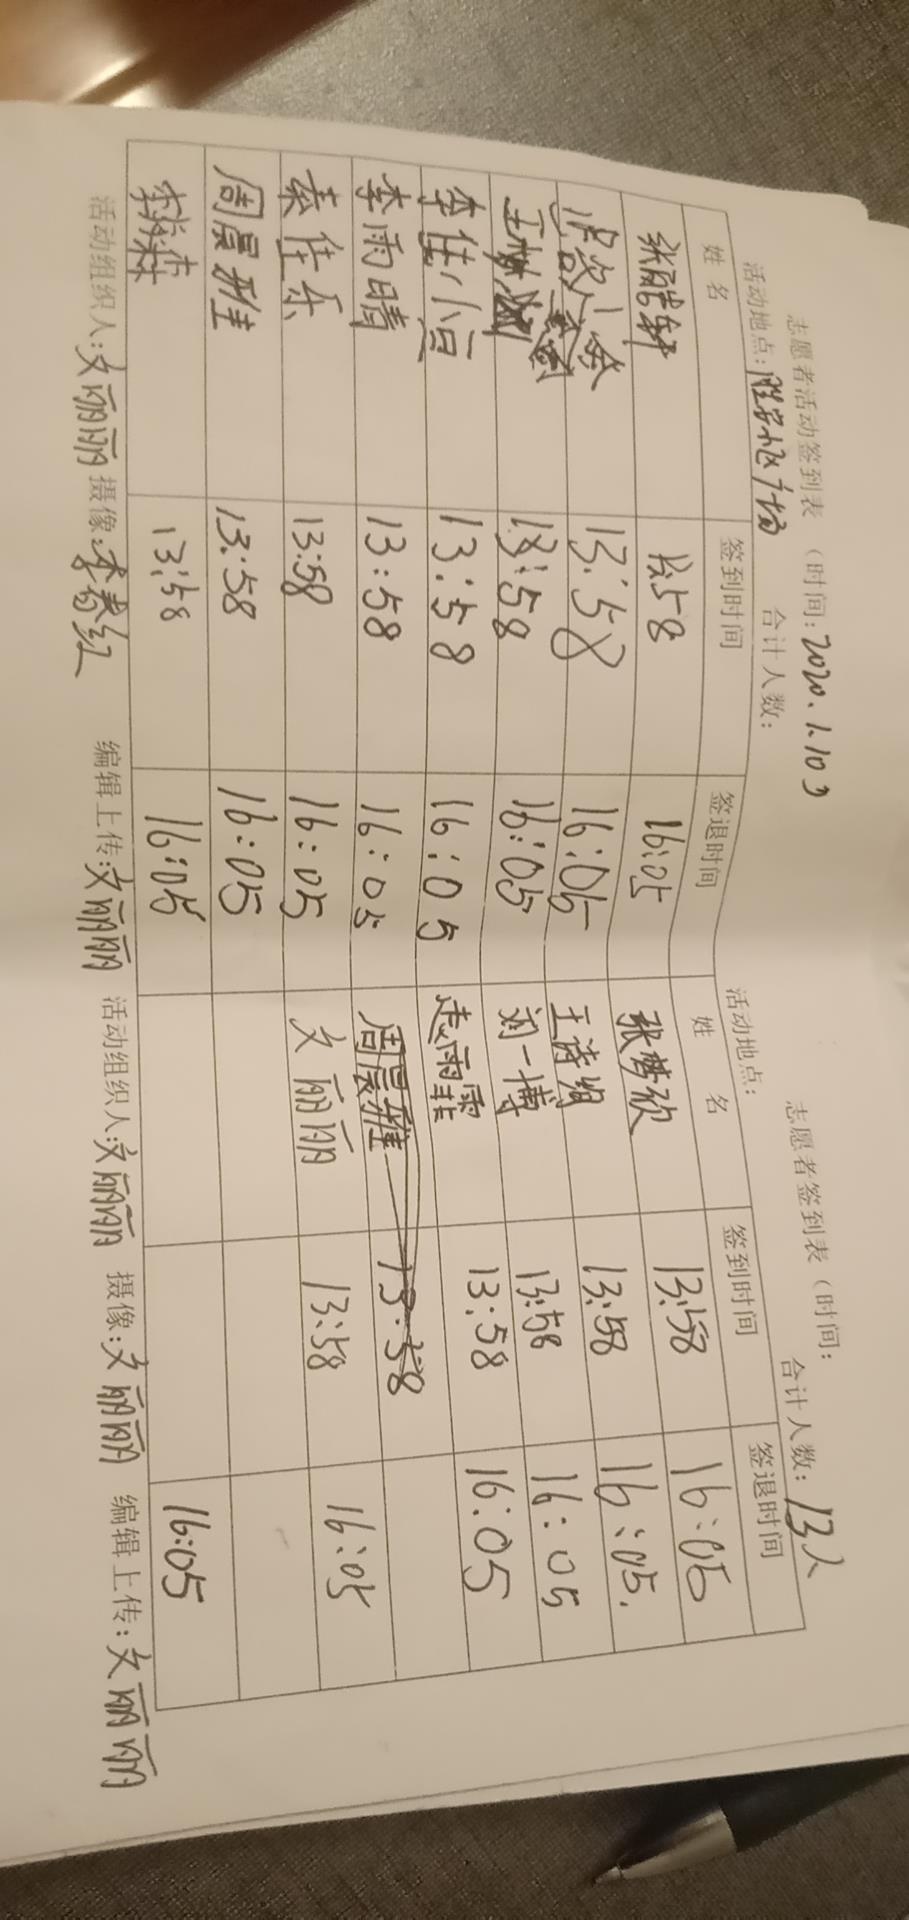 志愿者活动签到表（时间：2020.1.10日
活动地点： 合计人数：
姓名 签到时间 签退时间
13:58 16:05
13:58 16:05
王 13:58 16:05
李佳恒 13:58 16:05
李雨晴 13:58 16:05
秦佳乐 13:58 16:05
周晨雅 13:58 16:05
13:58 16:05
活动组织人：文丽丽 摄像：李春红 编辑上传：文丽丽
志愿者签到表（时间：
活动地点： 合计人数：13人
姓名 签到时间 签退时间
张梦欣 13:58 16:05
王诗 13:58 16:05.
刘一博 13:58 16:05
雨霏 13:58 16:05
周晨雅 13:58
文丽丽 13:58 16:05
16:05
活动组织人：文丽丽 摄像：文丽丽 编辑上传：文丽丽